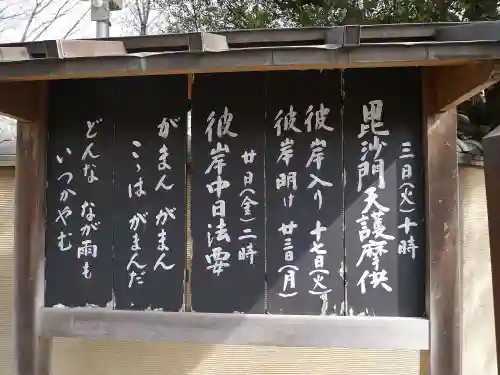 毘沙門天護摩供
三日(火)十時
彼岸入り 十七日(火)
彼岸明け 廿三日(月)
彼岸中日法要
廿日(金)二時
がまん がまん
こゝは がまんだ
どんな なが雨も
いつかやむ